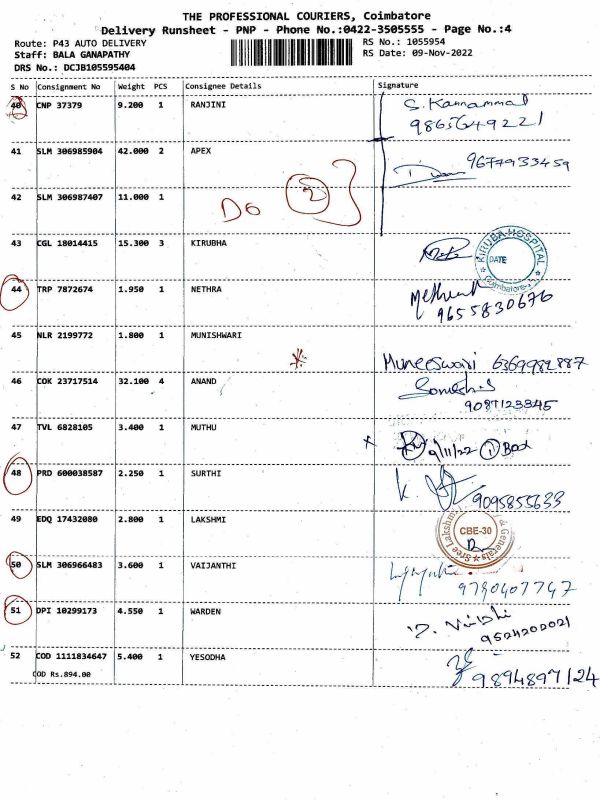 THE PROFESSIONAL COURIERS, Coimbatore
Delivery Runsheet - PNP - Phone No.:0422-3505555 - Page No.:4
Route: P43 AUTO DELIVERY RS No.: 1055954
Staff: BALA GANAPATHY RS Date: 09-Nov-2022
DRS No.: DCJB105595404
S No Consignment No Weight PCS Consignee Details Signature
40 CNP 37379 9.200 1 RANJINI S. Kannammal
9865649221
41 SLM 306985904 42.000 2 APEX 9677933459
42 SLM 306987407 11.000 1
Do 2
43 CGL 18014415 15.300 3 KIRUBHA
KIRUBA HOSPITAL
DATE
Coimbatore
44 TRP 7872674 1.950 1 NETHRA
9655830676
45 NLR 2199772 1.800 1 MUNISHWARI
Muneeswari 6369982887
46 COK 23717514 32.100 4 ANAND
9087123345
47 TVL 6828105 3.400 1 MUTHU
9/11/22 1 Box
48 PRD 600038587 2.250 1 SURTHI K.
9095855633
49 EDQ 17432080 2.800 1 LAKSHMI
Sree Lakshmi & Generals
CBE-30
50 SLM 306966483 3.600 1 VAIJANTHI
9790407747
51 DPI 10299173 4.550 1 WARDEN
9524202021
52 COD 1111834647 5.400 1 YESODHA
COD Rs.894.00 9894897124